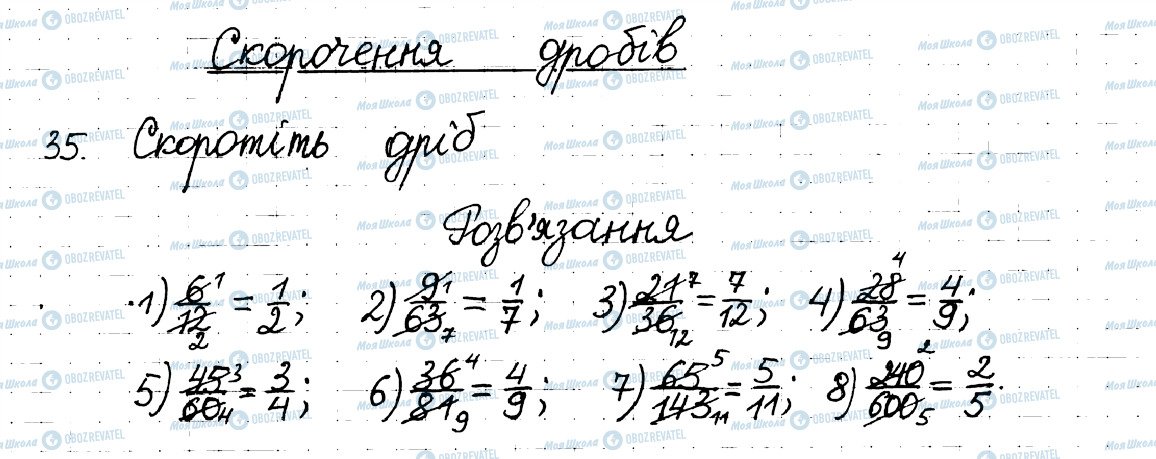 Скорочення дробів
35. Скоротіть дріб
Розв'язання
1) 6/12 = 1/2; 2) 9/63 = 1/7; 3) 21/36 = 7/12; 4) 28/63 = 4/9;
5) 45/60 = 3/4; 6) 36/81 = 4/9; 7) 65/143 = 5/11; 8) 240/600 = 2/5.
МояШкола OBOZREVATEL